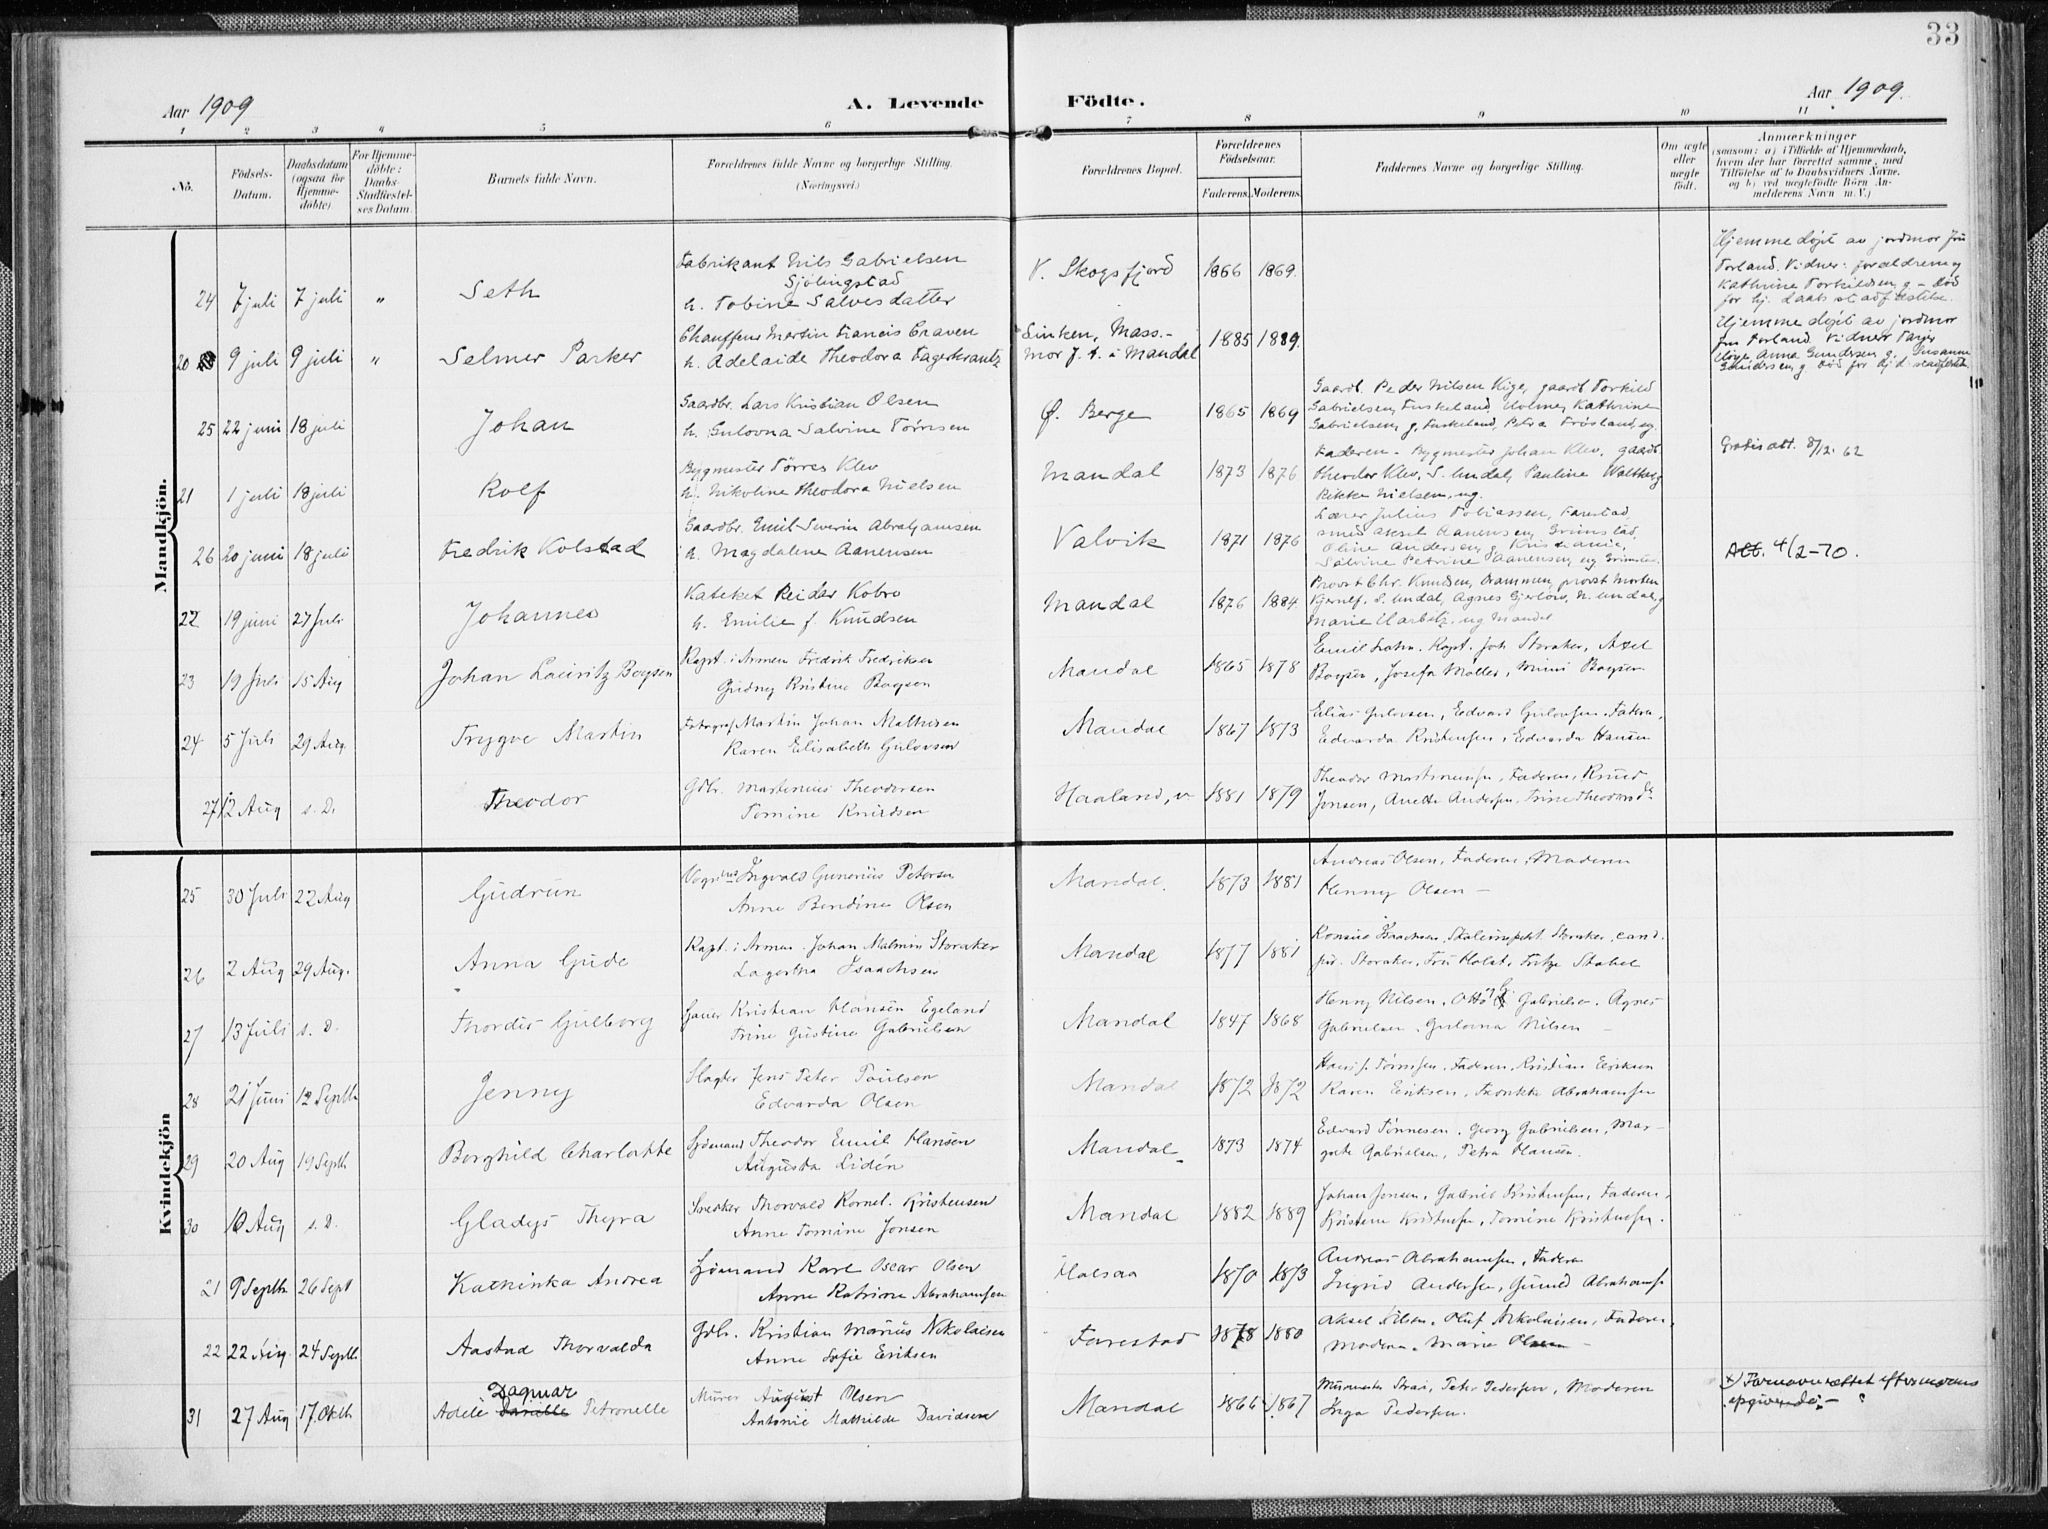 33
Aar 1909
A. Levende
Födte.
Aar 1909.
1 2 3 4 5 6 7 8 9 10 11
No.
Födsels-
Datum.
Daabsdatum
(ogsaa for
Hjemme-
döbte).
For Hjemme-
döbte:
Daabs-
Stadfæstel-
ses Datum.
Barnets fulde Navn.
Forældrenes fulde Navne og borgerlige Stilling.
(Næringsvei.)
Forældrenes Bopæl.
Forældrenes
Födselsaar.
Faderens. Moderens.
Faddernes Navne og borgerlige Stilling.
Om ægte
eller
uægte
födt.
Anmærkninger
(saasom: a) i Tilfælde af Hjemmedaab,
hvem der har forrettet samme, med
Tilföielse af to Daabsvidners Navne,
og b) ved uægtefödte Börn An-
melderens Navn m. V.)
Mandkjön.
24 7 juli 7 juli " Seth
Fabrikant Nils Gabrielsen
Sjölingstad
h. Tobine Salvesdatter
V. Skogsfjord 1866 1869.
Hjemme døpt av jordmor fru
Torland. Vidner: forældrene og
Kathrine Torkildsen g. - Død
før hj. daabs stadfestelse.
20 9 juli 9 juli " Selmer Parker
Chauffeur Martin Francis Craven
h. Adelaide Theodora Fagerkrantz
Mass.-
mor f. t. i Mandal 1885 1889.
Hjemme døpt av jordmor
fru Torland. Vidner:
Anna Gundersen g. Susanne
Gundersen g. Død før hj. d. stadfestelse
25 22 juni 18 juli Johan
Gaardbr. Lars Kristian Olsen
h. Gulovna Salvine Tørresen
Ø. Berge 1865 1869
Gaardb. Peder Nilsen Kige, gaardb Torkild
Gabrielsen, Fuskeland, Kathrine
Gabrielsen g. Fuskeland, Petra Frøsland, ug.
21 1 juli 18 juli Rolf
Bygmester Tørres Klev
h. Nikoline Theodora Nielsen
Mandal 1873 1876
Faderen - Bygmester Johan Klev, gaardb.
Theodor Klev, S. Undal, Pauline
Rikke Nielsen, ug.
Gratis att. 8/12. 62
26 20 juni 18 juli Fredrik Kolstad
Gaardbr. Emil Severin Abrahamsen
h. Magdalene Aanensen
Valvik 1871 1876
Lærer Julius Tobiassen, Farestad,
smed Aksel Aanensen, Grimstad,
Oline Andersen g. Kristiania,
Salvine Petrine Aanensen, ug
Att. 4/2-70.
22 19 juni 27 Juli Johannes
Kateket Reidar Kobro
h. Emilie f. Knudsen
Mandal 1876 1884.
Provst Chr. Knudsen, Drammen, provst Morten
S. Undal, Agnes Gjerløw, N. Undal, g
Marie ug Mandal
23 19 Juli 15 Aug Johan Lauritz Boysen
Kapt. i Armen Fredrik Fredriksen
Gudny Kristine Boysen
Mandal 1865 1878
Kapt. Joh Storaker, Axel
Boysen, Josefa Møller, Mimi Boysen
24 5 Juli 29 Aug. Trygve Martin
Fotograf Martin Johan Mathisen
Karen Elisabeth Gulovsen
Mandal 1867 1873
Elias Gulovsen, Edvard Gulovsen, Faderen,
Edvarda Kristensen, Edvarda Hansen
27 12 Aug s. D. Theodor
Gdbr. Martinius Theodorsen
Tomine Knudsen
Haaland, v 1881 1879
Theodor Faderen, Knud
Jonsen, Anette Andersen, Trine Theodorsd.
Kvindekjön
25 30 Juli 22 Aug Gudrun
Ingvald Gunerius Petersen
Anne Bendine Olsen
Mandal. 1873 1881
Andreas Olsen, Faderen, Moderen
Henny Olsen -
26 2 Aug 29 Aug. Anna Gude
Kapt. i Armen Johan Malmin Storaker
Lagertha Isaachsen
Mandal 1877 1881
Konsul Isaachsen, Storaker, cand.
jur. Storaker, Fru Holst, Stabel
27 13 Juli s. D. Thordis Gulborg
Kristian Hansen Egeland
Trine Gustine Gabrielsen
Mandal 1847 1868
Henry Nilsen, Otto G Gabrielsen, Agnes
Gabrielsen, Gulovna Nilsen -
28 21 Juni 12 Septb. Jenny
Slagter Jens Peter Poulsen
Edvarda Olsen
Mandal 1872 1872
Faderen, Kristian Eriksen
Karen Eriksen, Abrahamsen
29 20 Aug 19 Septb Borghild Charlotte
Sjömand Theodor Emil Hansen
Augusta Lidén
Mandal 1873 1874
Edvard Tönnesen, Georg Gabrielsen, Mar-
grete Gabrielsen, Petra Hansen.
30 10 Aug s. D. Gladys Thyra
Snedker Thorvald Kornel. Kristensen
Anne Tomine Jonsen
Mandal 1882 1889
Johan Jonsen, Gabriel Kristensen, Faderen,
Kristene Kristensen, Tomine Kristensen.
21 9 Septb 26 Sept Kathinka Andrea
Sjømand Karl Oscar Olsen
Anne Katrine Abrahamsen
Halsaa 1870 1873
Andreas Abrahamsen, Faderen
Ingrid Andersen, Gunild Abrahamsen
22 22 Aug. 24 Septb. Aastad Thorvalda
Gdbr. Kristian Marius Nikolaisen
Anne Sofie Eriksen
Farestad 1878 1880
Aksel Olsen, Oluf Nikolaisen, Faderen,
Moderen, Marie Olsen -
31 27 Aug 17. Oktb. Adele Dagmar Petronelle
Murer August Olsen
Antonie Mathilde Davidsen
Mandal 1866 1867
Murmester Strai, Peter Pedersen, Moderen
Inga Pedersen.
x) Fornavn rettet efter morens
opgivende. -